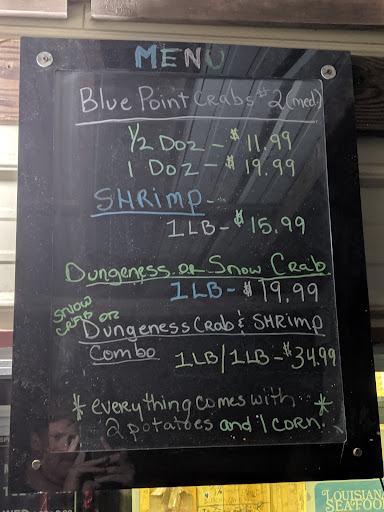 MENU
Blue Point Crabs #2 (med.)
1/2 Doz - $11.99
1 Doz - $19.99
SHRIMP -
1LB - $15.99
Dungeness or Snow Crab
1LB - $19.99
SNOW CRAB or
Dungeness Crab & SHRIMP
Combo 1LB/1LB - $34.99
* everything comes with *
2 potatoes and 1 corn.
LOUISIANA
SEAFOOD